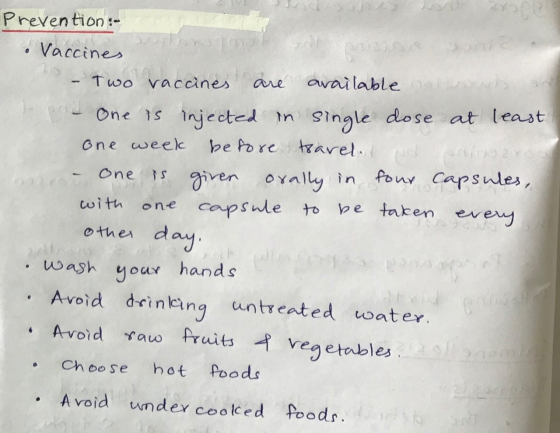 Prevention:-
• Vaccines
- Two vaccines are available
- One is injected in single dose at least
one week before travel.
- One is given orally in four capsules,
with one capsule to be taken every
other day.
• Wash your hands
• Avoid drinking untreated water.
• Avoid raw fruits & vegetables.
• Choose hot foods
• Avoid undercooked foods.